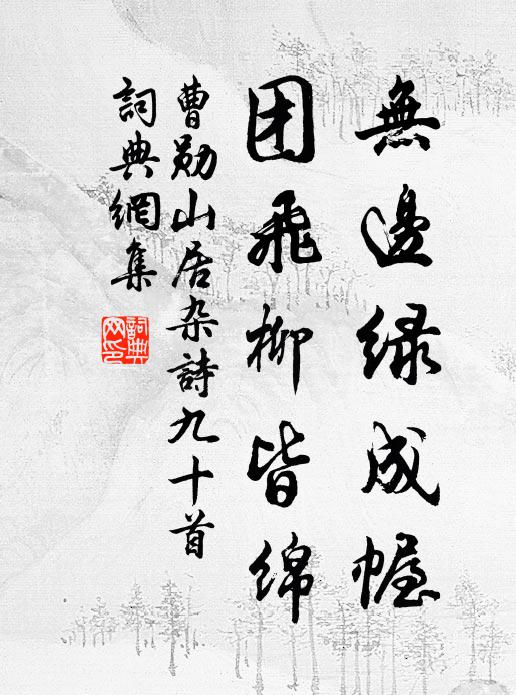 無邊绿成幄
团飛柳皆綿
曹勋山居杂詩九十首
詞典網集
詞典網印